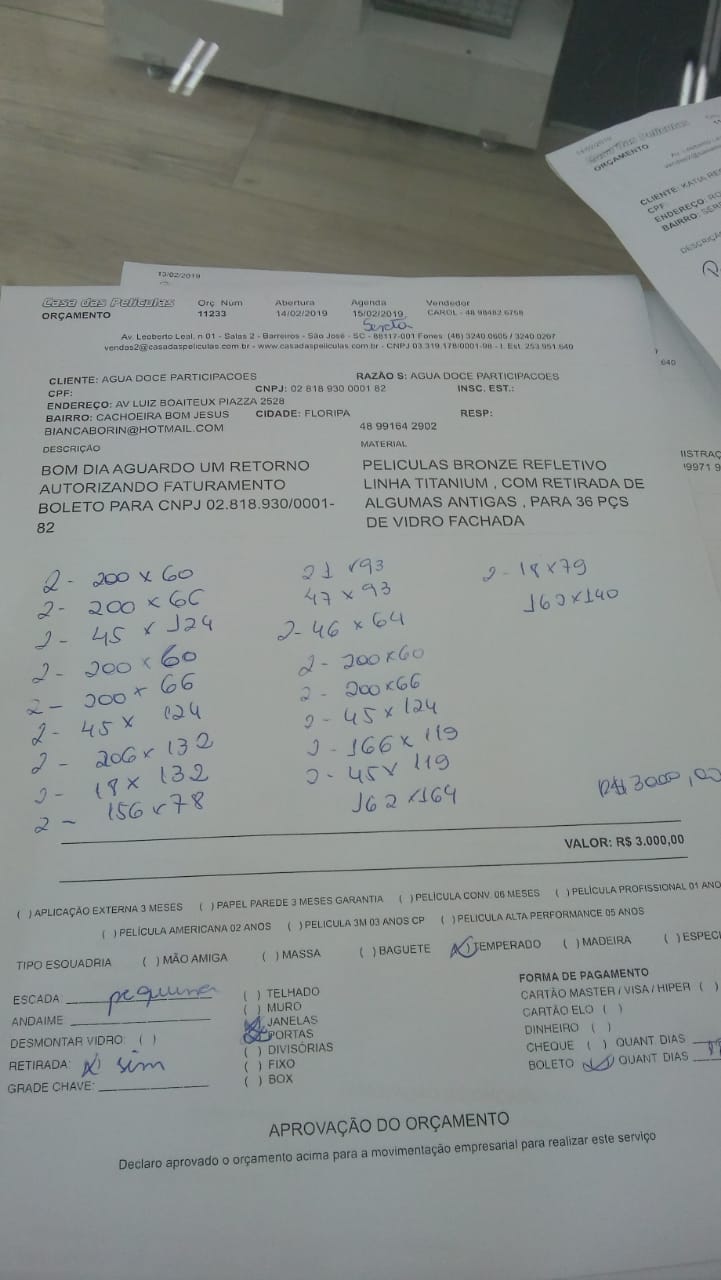 14/02/2019
ORÇAMENTO
CLIENTE: KATIA
CPF:
ENDEREÇO:
BAIRRO:
13/02/2019
Casa das Peliculas Orç. Num Abertura Agenda Vendedor
ORÇAMENTO 11233 14/02/2019 15/02/2019 CAROL - 48 98482 6758
Sexta
Av. Leoberto Leal, n 01 - Salas 2 - Barreiros - São José - SC - 88117-001 Fones: (48) 3240.0605 / 3240.0207
vendas2@casadaspeliculas.com.br - www.casadaspeliculas.com.br - CNPJ 03.319.178/0001-98 - I. Est. 253.951.640
640
CLIENTE: AGUA DOCE PARTICIPACOES RAZÃO S: AGUA DOCE PARTICIPACOES
CPF: CNPJ: 02 818 930 0001 82 INSC. EST.:
ENDEREÇO: AV LUIZ BOAITEUX PIAZZA 2528
BAIRRO: CACHOEIRA BOM JESUS CIDADE: FLORIPA RESP:
BIANCABORIN@HOTMAIL.COM 48 99164 2902
DESCRIÇÃO MATERIAL
BOM DIA AGUARDO UM RETORNO PELICULAS BRONZE REFLETIVO
AUTORIZANDO FATURAMENTO LINHA TITANIUM , COM RETIRADA DE
BOLETO PARA CNPJ 02.818.930/0001- ALGUMAS ANTIGAS , PARA 36 PÇS
82 DE VIDRO FACHADA
2- 200 x 60 21 x93 2-18x79
2- 200 x 66 47 x 93 162x140
2- 45 x 124 2-46 x 64
2- 200 x 60 2-200x60
2- 200 x 66 2-200x66
2- 45 x 124 2-45x124
2- 206 x 132 2-166x119
2- 18x 132 2-45x 119
2- 156x78 162x164
R$ 3000,00
VALOR: R$ 3.000,00
( ) APLICAÇÃO EXTERNA 3 MESES ( ) PAPEL PAREDE 3 MESES GARANTIA ( ) PELÍCULA CONV. 06 MESES ( ) PELÍCULA PROFISSIONAL 01 ANO
( ) PELÍCULA AMERICANA 02 ANOS ( ) PELICULA 3M 03 ANOS CP ( ) PELICULA ALTA PERFORMANCE 05 ANOS
TIPO ESQUADRIA ( ) MÃO AMIGA ( ) MASSA ( ) BAGUETE (X) TEMPERADO ( ) MADEIRA ( ) ESPECI
ESCADA pequena ( ) TELHADO FORMA DE PAGAMENTO
ANDAIME ( ) MURO CARTÃO MASTER / VISA / HIPER ( )
DESMONTAR VIDRO: ( ) (X) JANELAS CARTÃO ELO ( )
RETIRADA: (X) sim (X) PORTAS DINHEIRO ( )
GRADE CHAVE: ( ) DIVISÓRIAS CHEQUE ( ) QUANT DIAS
( ) FIXO BOLETO (X) QUANT DIAS
( ) BOX
APROVAÇÃO DO ORÇAMENTO
Declaro aprovado o orçamento acima para a movimentação empresarial para realizar este serviço